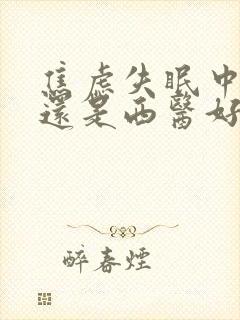 焦虑失眠中
還是西醫好
醉春煙